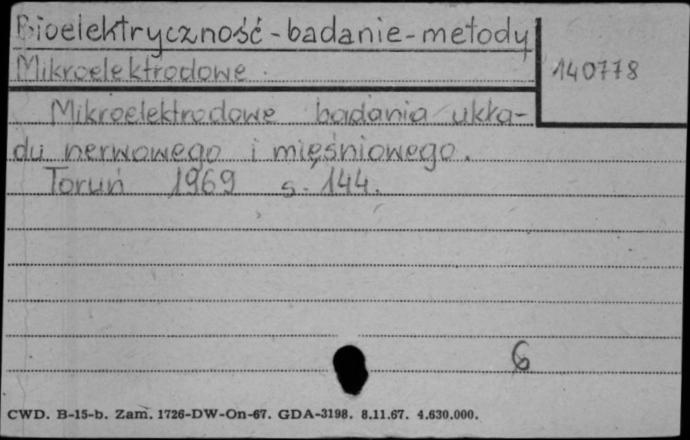 Bioelektryczność - badanie - metody
Mikroelektrodowe.
140778
Mikroelektrodowe badania ukła-
du nerwowego i mięśniowego.
Toruń 1969 s. 144.
6
CWD. B-15-b. Zam. 1726-DW-On-67. GDA-3198. 8.11.67. 4.630.000.